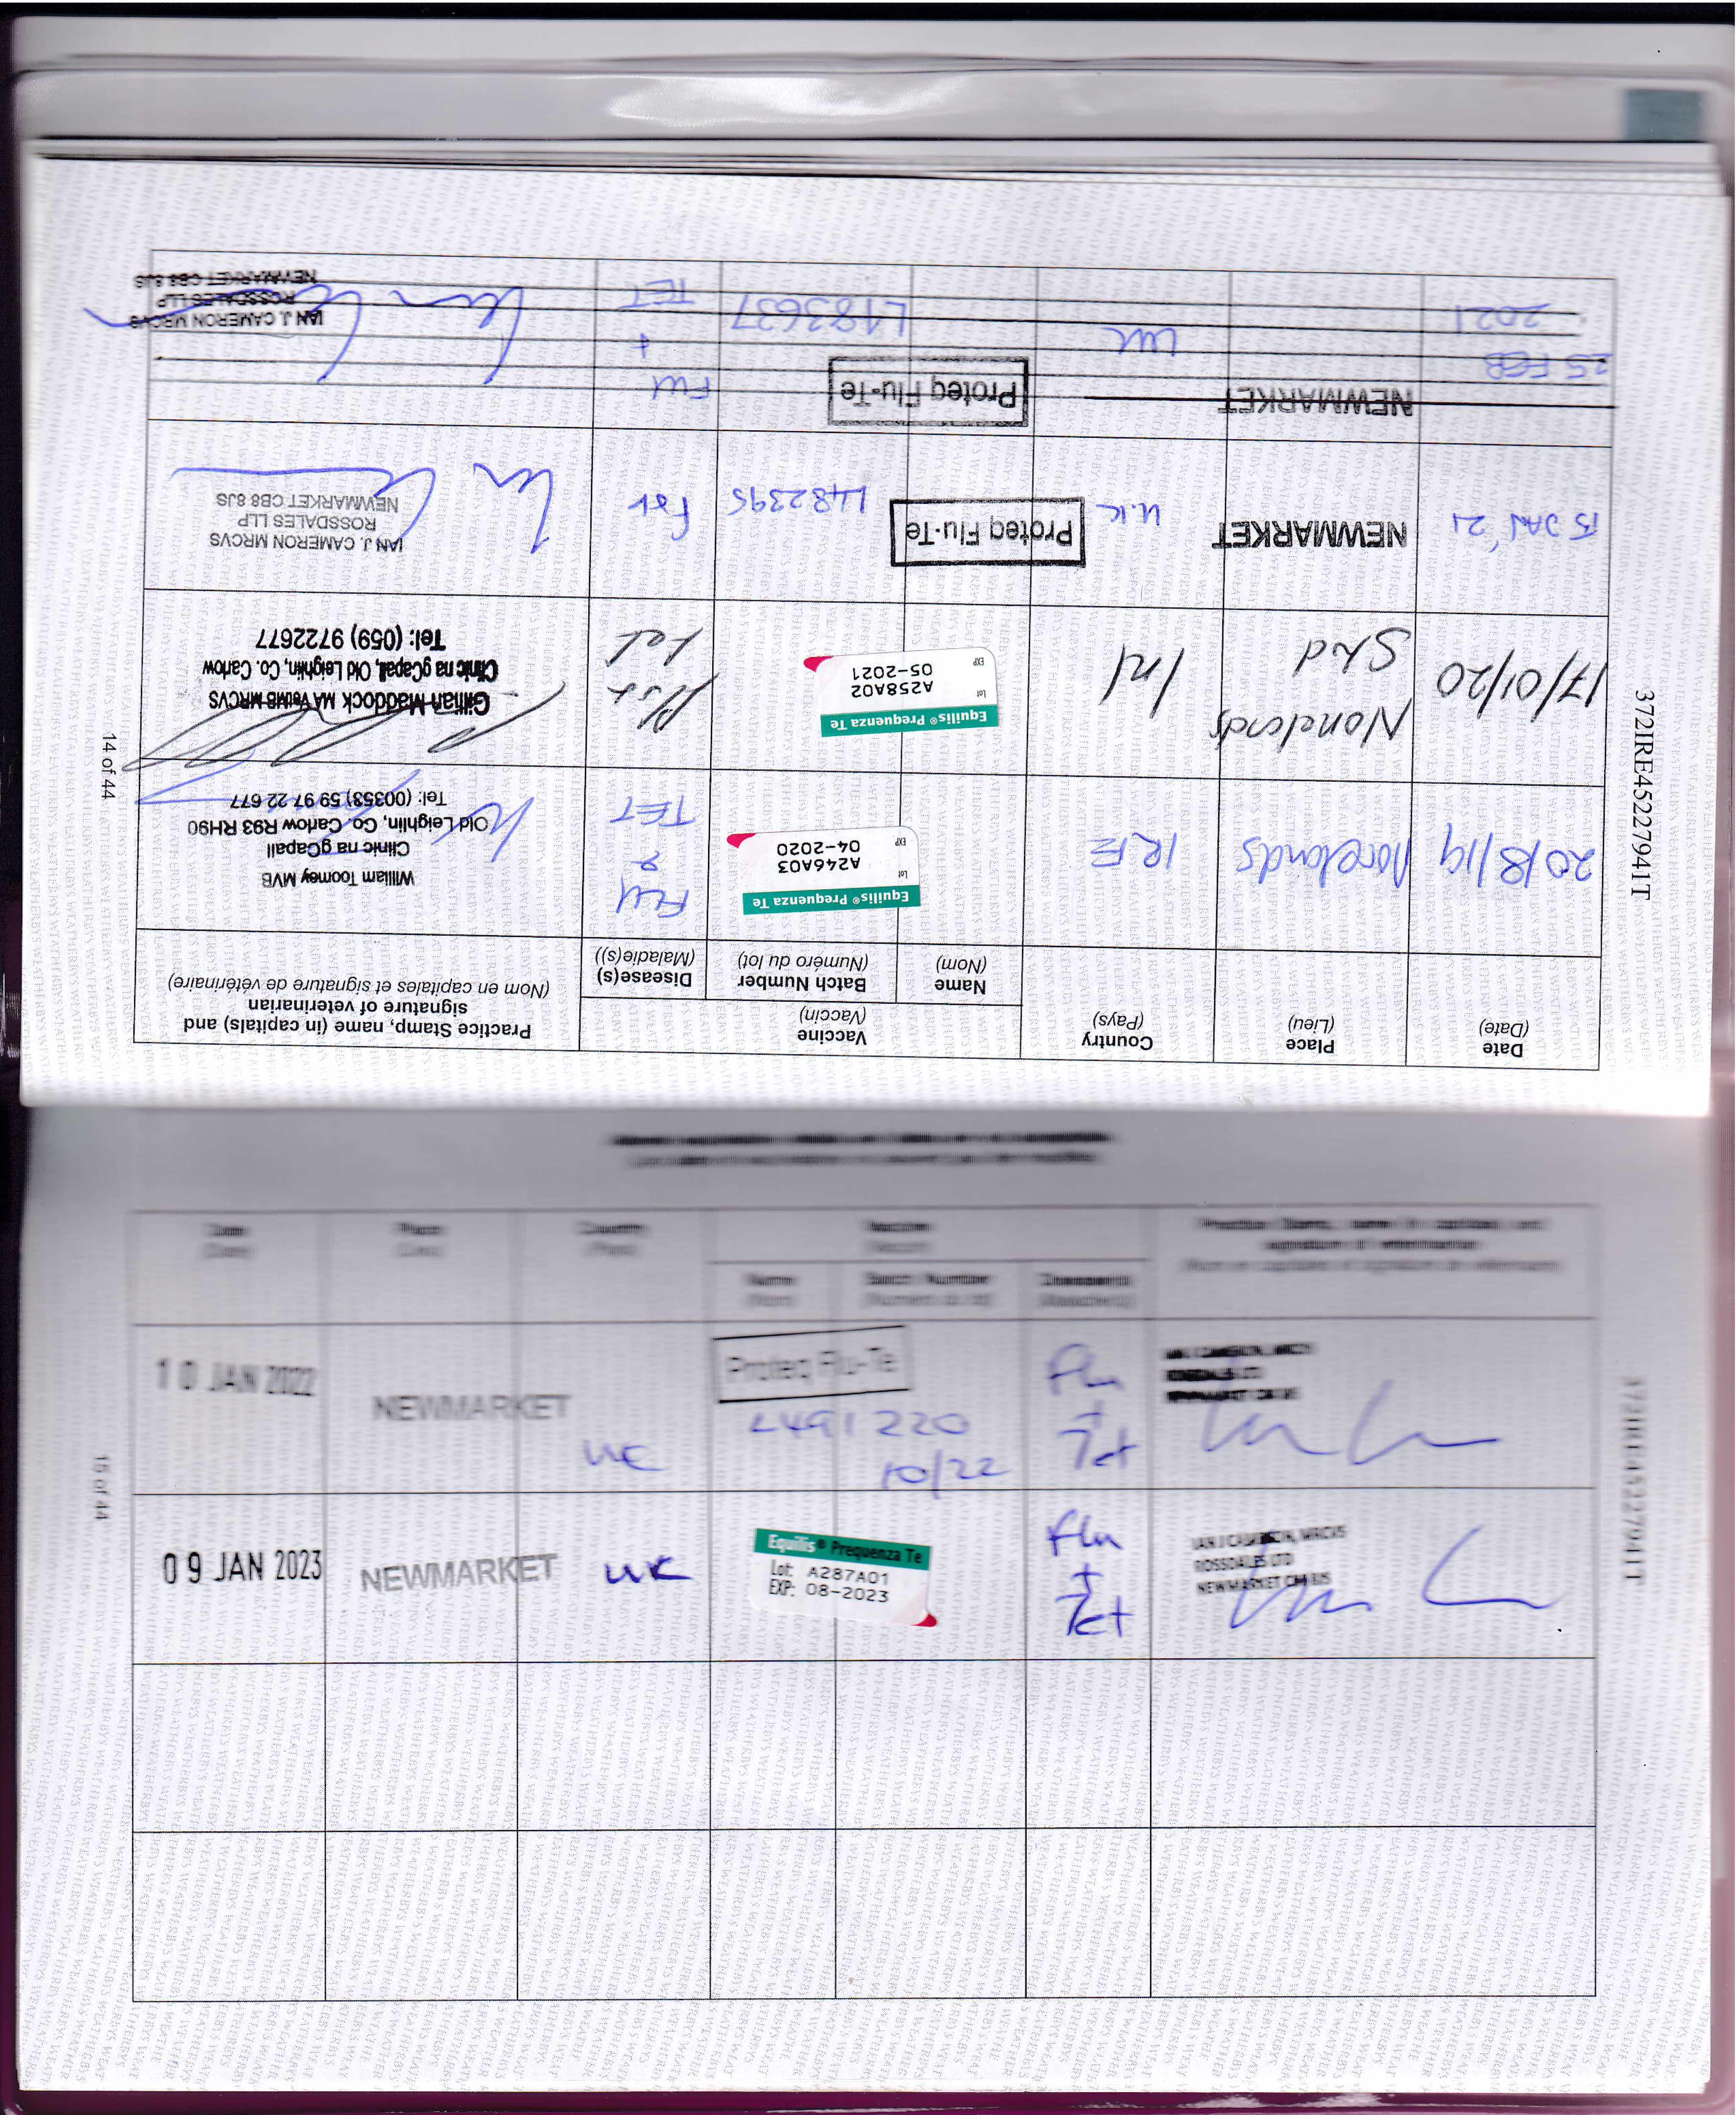 372IRE45227941T
14 of 44
Date
(Date)
Place
(Lieu)
Country
(Pays)
Vaccine
(Vaccin)
Name
(Nom)
Batch Number
(Numéro du lot)
Disease(s)
(Maladie(s))
Practice Stamp, name (in capitals) and
signature of veterinarian
(Nom en capitales et signature de vétérinaire)
20/8/19
Norelands
IRE
Equilis® Prequenza Te
Lot A246A03
EXP 04-2020
FLU
&
TET
William Toomey MVB
Clinic na gCapall
Old Leighlin, Co. Carlow R93 RH90
Tel: (00353) 59 97 22 677
17/01/20
Norelands
Stud
Irl
Equilis® Prequenza Te
Lot A258A02
EXP 05-2021
Tet
Gillian Maddock MA VetMB MRCVS
Clinic na gCapall, Old Leighlin, Co. Carlow
Tel: (059) 9722677
15 JAN '21
NEWMARKET
U.K
Proteq Flu-Te
L482395
IAN J. CAMERON MRCVS
ROSSDALES LLP
NEWMARKET CB8 8JS
25 FEB
2021
NEWMARKET
UK
Proteq Flu-Te
L483637
FLU
+
TET
IAN J. CAMERON MRCVS
ROSSDALES LLP
NEWMARKET CB8 8JS
Date
(Date)
Place
(Lieu)
Country
(Pays)
Vaccine
(Vaccin)
Name
(Nom)
Batch Number
(Numéro du lot)
Disease(s)
(Maladie(s))
Practice Stamp, name (in capitals) and
signature of veterinarian
(Nom en capitales et signature de vétérinaire)
10 JAN 2022
NEWMARKET
UK
Proteq Flu-Te
L491220
10/22
Flu
+
Tet
IAN J CAMERON, MRCVS
ROSSDALES LTD
NEWMARKET CB8 8JS
09 JAN 2023
NEWMARKET
UK
Equilis® Prequenza Te
Lot: A287A01
EXP: 08-2023
Flu
+
Tet
IAN J CAMERON, MRCVS
ROSSDALES LTD
NEWMARKET CB8 8JS
15 of 44
372IRE45227941T